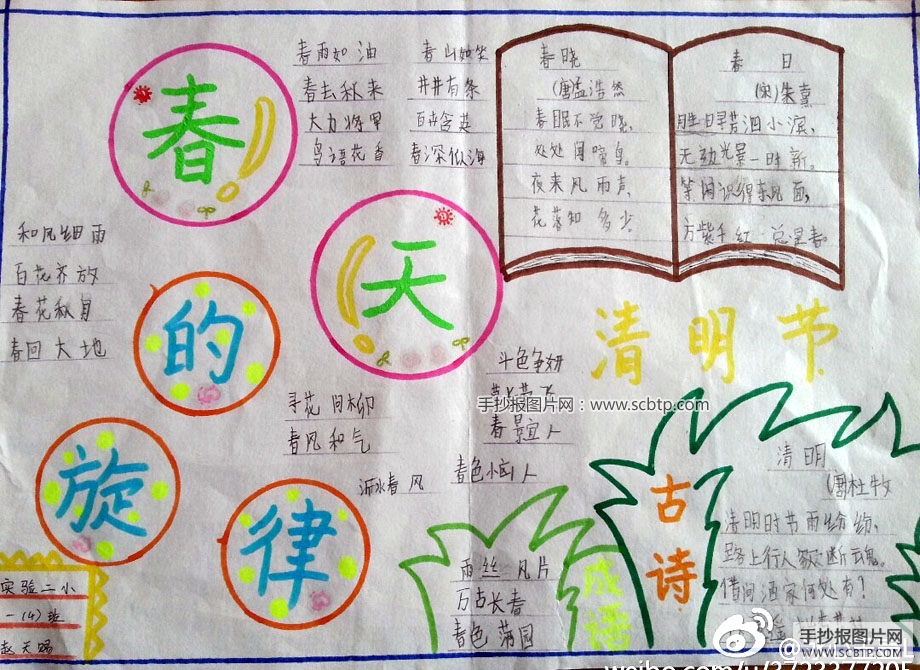 春
天
的
旋
律
春雨如油 春山如笑
春去秋来 井井有条
大力将军 百卉含英
鸟语花香 春深似海
春晓
(唐)孟浩然
春眠不觉晓,
处处闻啼鸟。
夜来风雨声,
花落知多少。
春日
(宋)朱熹
胜日寻芳泗水滨,
无边光景一时新。
等闲识得东风面,
万紫千红总是春。
和风细雨
百花齐放
春花秋月
春回大地
清明节
斗色争妍
手抄报图片网:www.scbtp.com
春景宜人
寻花问柳
春风和气
沂水春风
春色恼人
雨丝风片
万古长春
春色满园
成语
古诗
清明
(唐)杜牧
清明时节雨纷纷,
路上行人欲断魂。
借问酒家何处有?
实验二小
一(4)班
赵天赐
手抄报图片网
WWW.SCBTP.COM